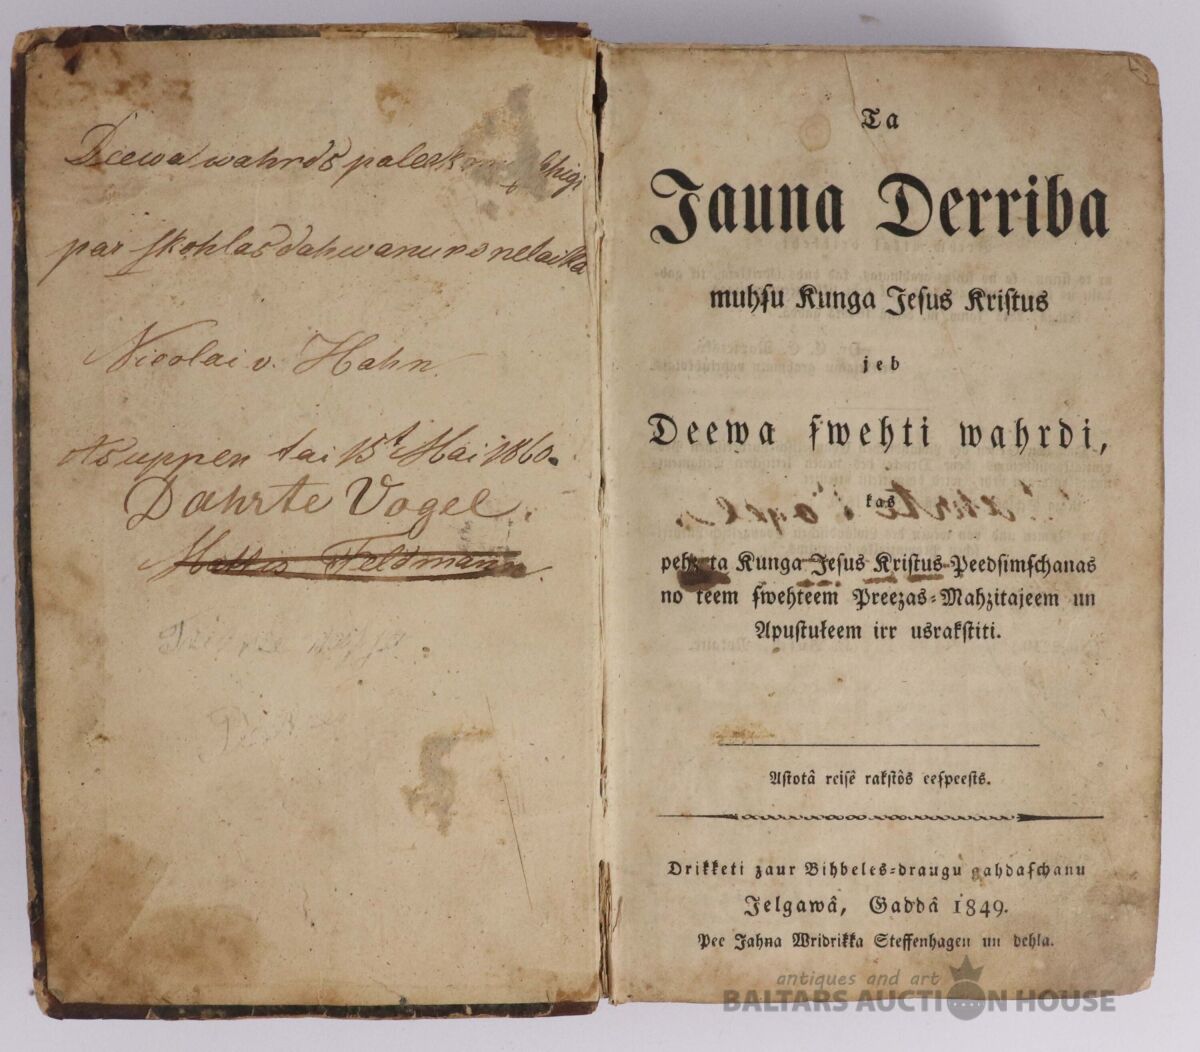 Deewa wahrds paleek
par skohlas dahwanu no nelaika
Nicolai v. Hahn.
Asuppen tai 15t Mai 1860.
Dahrte Vogel.
Feldmann
Ta
Jauna Derriba
muhſu Kunga Jeſus Kriſtus
jeb
Deewa ſwehti wahrdi,
kas
pehz ta Kunga Jeſus Kriſtus Peedſimſchanas
no teem ſwehteem Preezas-Mahzitajeem un
Apuſtuƚeem irr usrakſtiti.
Aſtotâ reiſê rakſtôs eeſpeeſts.
Drikketi zaur Bihbeles-draugu gahdaſchanu
Jelgawâ, Gaddâ 1849.
Pee Jahna Wridrikka Steffenhagen un dehla.
antiques and art
BALTARS AUCTION HOUSE